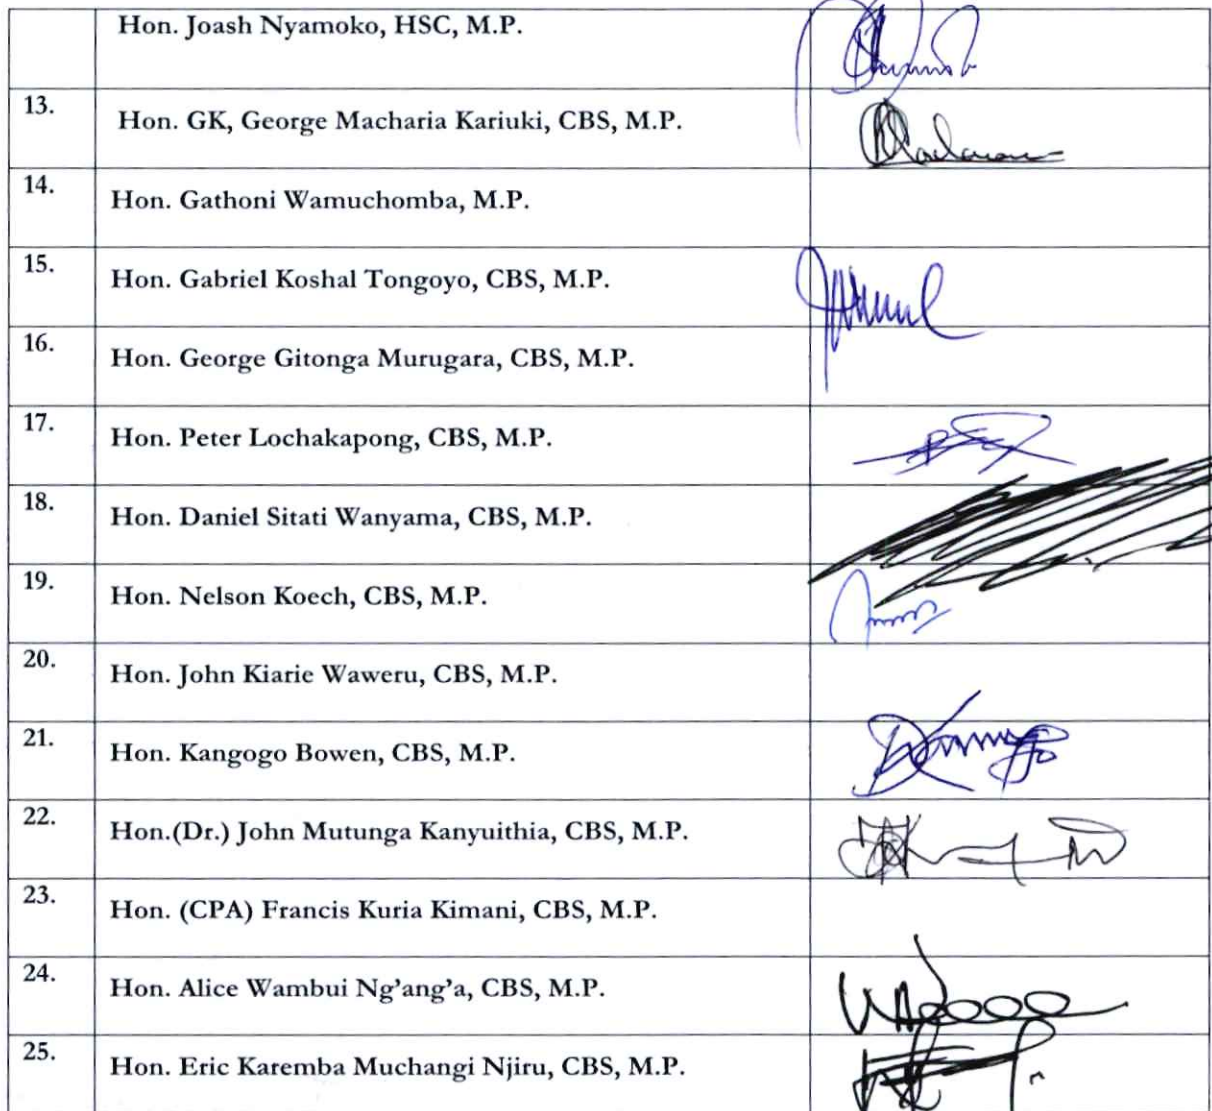 Hon. Joash Nyamoko, HSC, M.P.
13. Hon. GK, George Macharia Kariuki, CBS, M.P.
14. Hon. Gathoni Wamuchomba, M.P.
15. Hon. Gabriel Koshal Tongoyo, CBS, M.P.
16. Hon. George Gitonga Murugara, CBS, M.P.
17. Hon. Peter Lochakapong, CBS, M.P.
18. Hon. Daniel Sitati Wanyama, CBS, M.P.
19. Hon. Nelson Koech, CBS, M.P.
20. Hon. John Kiarie Waweru, CBS, M.P.
21. Hon. Kangogo Bowen, CBS, M.P.
22. Hon.(Dr.) John Mutunga Kanyuithia, CBS, M.P.
23. Hon. (CPA) Francis Kuria Kimani, CBS, M.P.
24. Hon. Alice Wambui Ng’ang’a, CBS, M.P.
25. Hon. Eric Karemba Muchangi Njiru, CBS, M.P.